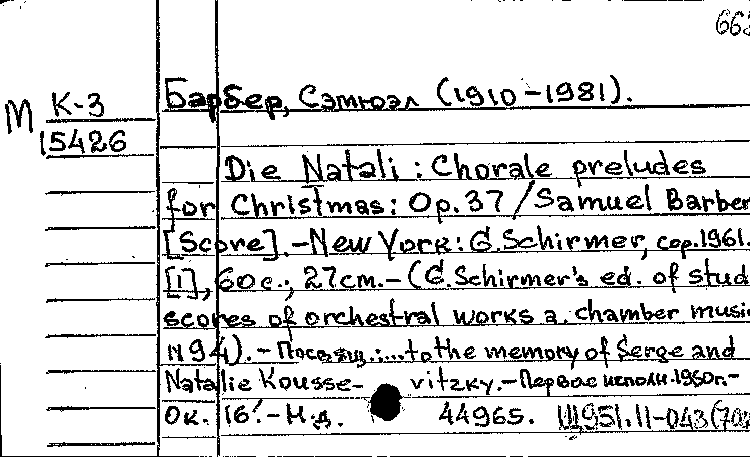 663
M К-3 Барбер, Сэмюэл (1910-1981).
15426
Die Natali : Chorale preludes
for Christmas: Op.37 / Samuel Barber
[Score].-New York: G.Schirmer, cop.1961.
[1], 60с.; 27см.-(G.Schirmer's ed. of stud
scores of orchestral works a. chamber musi
N94).-Посвящ.:...to the memory of Serge and
Natalie Kousse- vitzky.-Первое исполн.1960г.-
Ок. 16'.-Н.д. 44965. Щ951.11-043(70